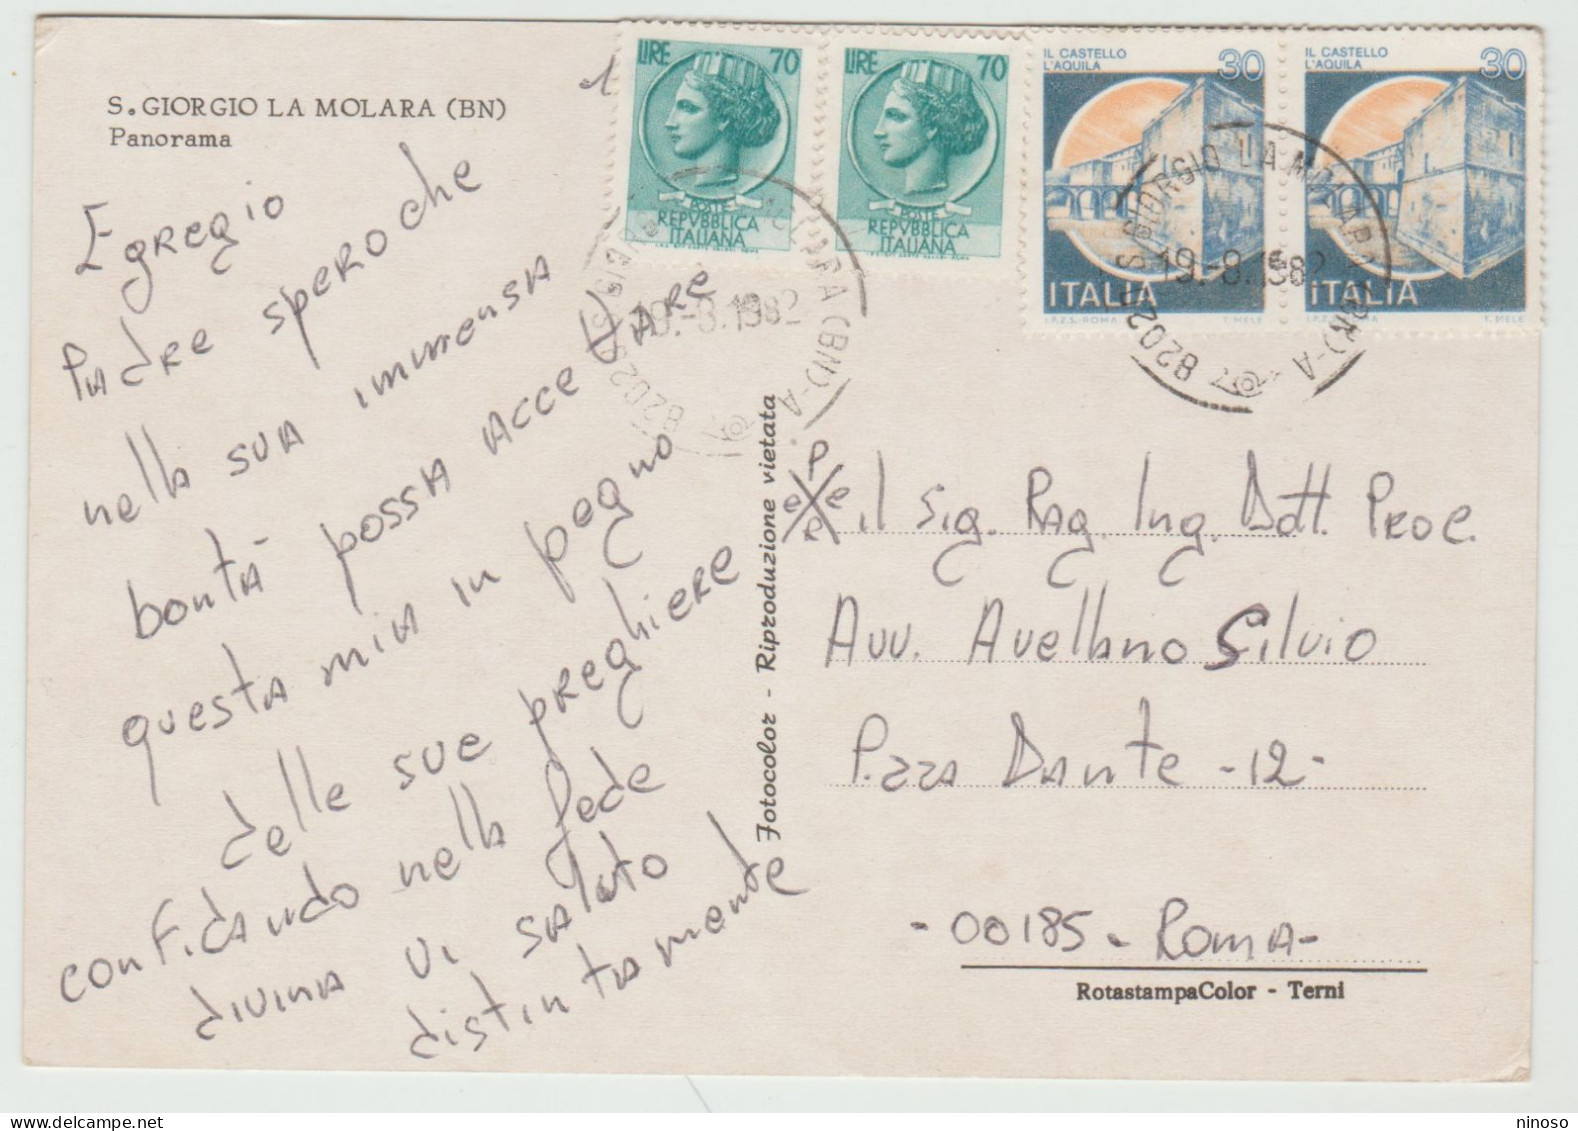 S. GIORGIO LA MOLARA (BN)
Panorama
Egregio
Padre spero che
nella sua immensa
bontà possa accettare
questa mia in pegno
delle sue preghiere
confidando nella fede
divina vi saluto
distintamente
LIRE 70
POSTE
REPVBBLICA
ITALIANA
LIRE 70
POSTE
REPVBBLICA
ITALIANA
IL CASTELLO
L'AQUILA
30
ITALIA
I.P.Z.S.-ROMA T. MELE
IL CASTELLO
L'AQUILA
30
ITALIA
I.P.Z.S.-ROMA T. MELE
82020 S. GIORGIO LA MOLARA (BN)-A
19.-8.1982
82020 S. GIORGIO LA MOLARA (BN)-A
19.-8.1982
Fotocolor - Riproduzione vietata
il Sig. Rag. Ing. Dott. Prof.
Avv. Avellano Silvio
P.zza Dante -12-
-00185- Roma-
RotastampaColor - Terni
ninoso